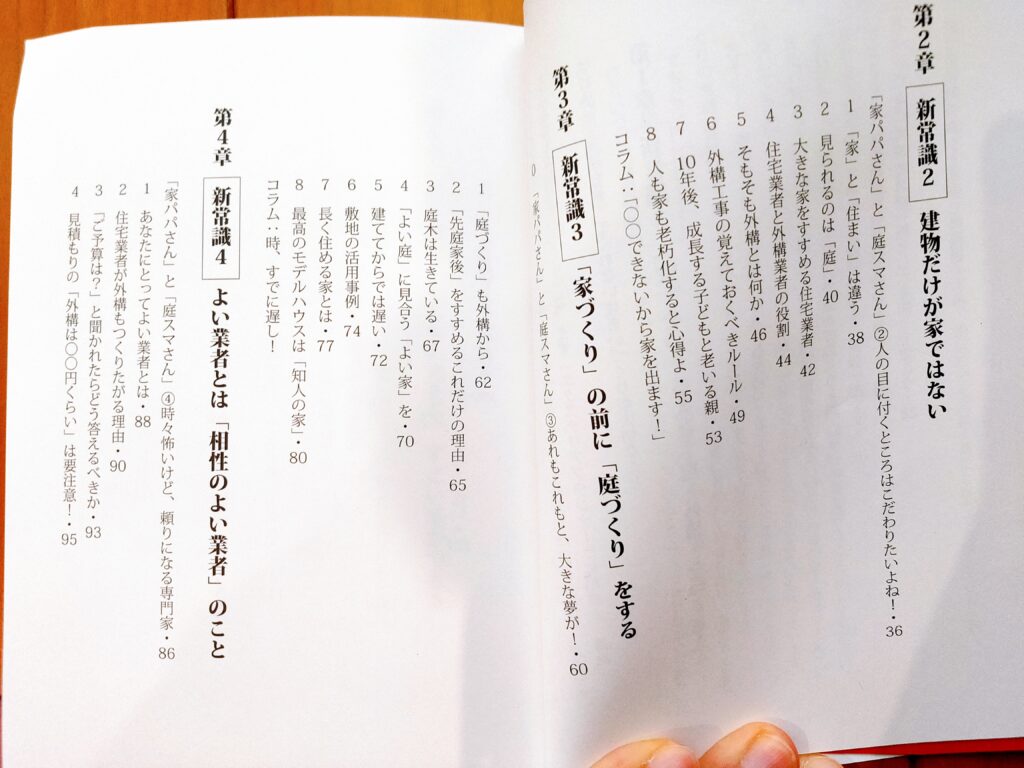 第2章 新常識2 建物だけが家ではない
「家パパさん」と「庭スマさん」②人の目に付くところはこだわりたいよね！・36
1 「家」と「住まい」は違う・38
2 見られるのは「庭」・40
3 大きな家をすすめる住宅業者・42
4 住宅業者と外構業者の役割・44
5 そもそも外構とは何か・46
6 外構工事の覚えておくべきルール・49
7 10年後、成長する子どもと老いる親・53
8 人も家も老朽化すると心得よ・55
コラム：「〇〇できないから家を出ます！」
第3章 新常識3 「家づくり」の前に「庭づくり」をする
0 「家パパさん」と「庭スマさん」③あれもこれもと、大きな夢が！・60
1 「庭づくり」も外構から・62
2 「先庭家後」をすすめるこれだけの理由・65
3 庭木は生きている・67
4 「よい庭」に見合う「よい家」を・70
5 建ててからでは遅い・72
6 敷地の活用事例・74
7 長く住める家とは・77
8 最高のモデルハウスは「知人の家」・80
コラム：時、すでに遅し！
第4章 新常識4 よい業者とは「相性のよい業者」のこと
「家パパさん」と「庭スマさん」④時々怖いけど、頼りになる専門家・86
1 あなたにとってよい業者とは・88
2 住宅業者が外構もつくりたがる理由・90
3 「ご予算は？」と聞かれたらどう答えるべきか・93
4 見積もりの「外構は〇〇円くらい」は要注意！・95